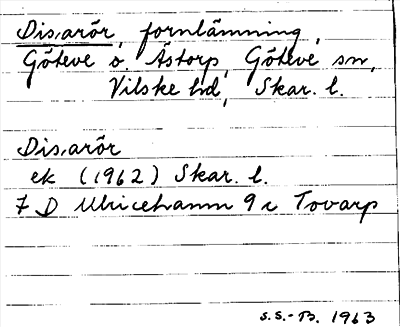 Disarör, fornlämning,
Göteve o. Åstorp, Göteve sn,
Vilske hd, Skar. l.
Disarör
ek (1962) Skar. l.
7 D Ulricehamn 9 c Tovarp
S.S.-B. 1963